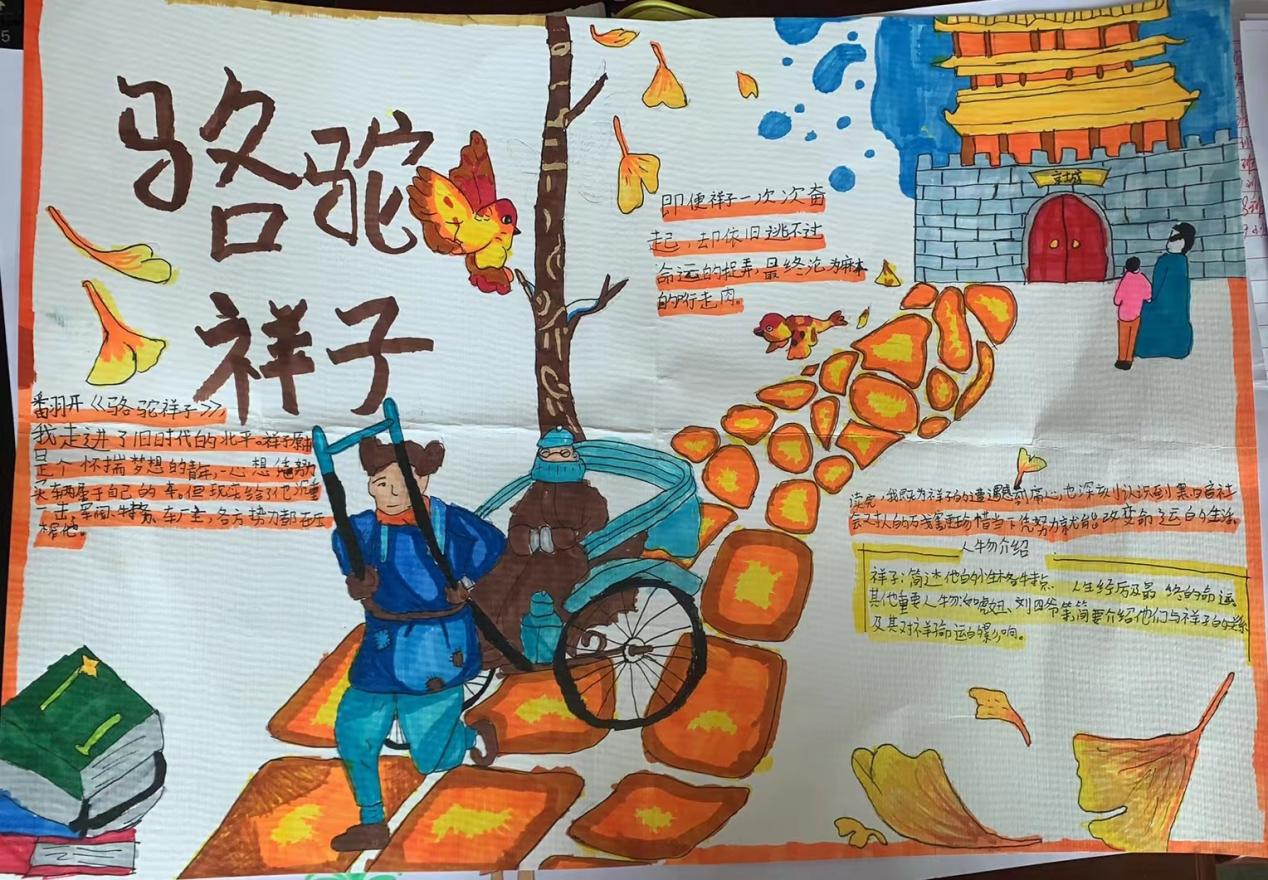 骆驼
祥子
翻开《骆驼祥子》
我走进了旧时代的北平。祥子原本
是个怀揣梦想的青年,一心想靠努力
买辆属于自己的车。但现实给了他沉重
一击,军阀、特务、车厂主,各方势力都在压
榨他。
即便祥子一次次奋
起,却依旧逃不过
命运的捉弄,最终沦为麻木
的行走肉。
读完,我既为祥子的遭遇感到痛心,也深刻认识到黑暗社
会对人的
珍惜当下凭努力就能改变命运的生活。
人物介绍
祥子:简述他的外性格特点、人生经历及最终的命运
其他重要人物:如虎妞、刘四爷等,简要介绍他们与祥子的关系
及其对祥子命运的影响。